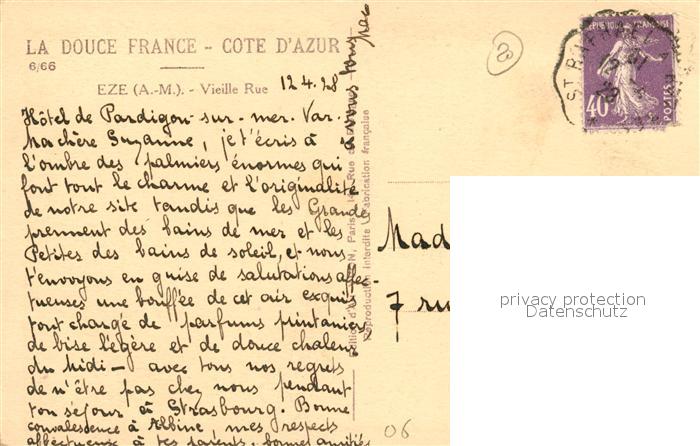 LA DOUCE FRANCE - COTE D'AZUR
6/66
EZE (A.-M.). - Vieille Rue
12.4.28
Hôtel de Pardigon-sur-mer. Var.
Ma chère Suzanne, je t'écris à
l'ombre des palmiers énormes qui
font tout le charme et l'originalité
de notre site tandis que les Grands
prennent des bains de mer et les
Petites des bains de soleil, et nous
t'envoyons en guise de salutations affec-
tueuses une bouffée de cet air exquis
tout chargé de parfums printaniers
de bise légère et de douce chaleur
du Midi — avec tous nos regrets
de n'être pas chez nous pendant
ton séjour à Strasbourg. Bonne
convalescence à Albine mes respects
affectueux à tes parents, bonnes amitiés
à vous tous
Reproduction interdite Fabrication française
ST RAPHAEL A
12
RÉPUBLIQUE FRANÇAISE
40
POSTES
Mad
7 ru
privacy protection
Datenschutz
06